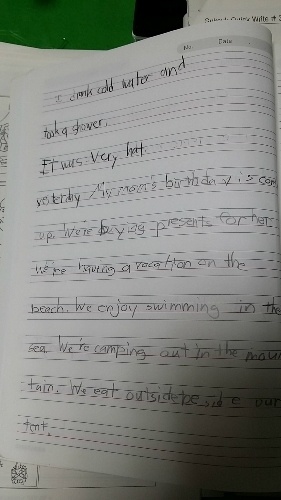 Write it
No.
Date
I drank cold water and
took a shower.
It was very hot
yesterday My mom's birthday is com
up. We're buying presents for her
We're having a vacation on the
beach. We enjoy swimming in the
sea. We're camping out in the moun
tain. We eat outside beside our
tent.